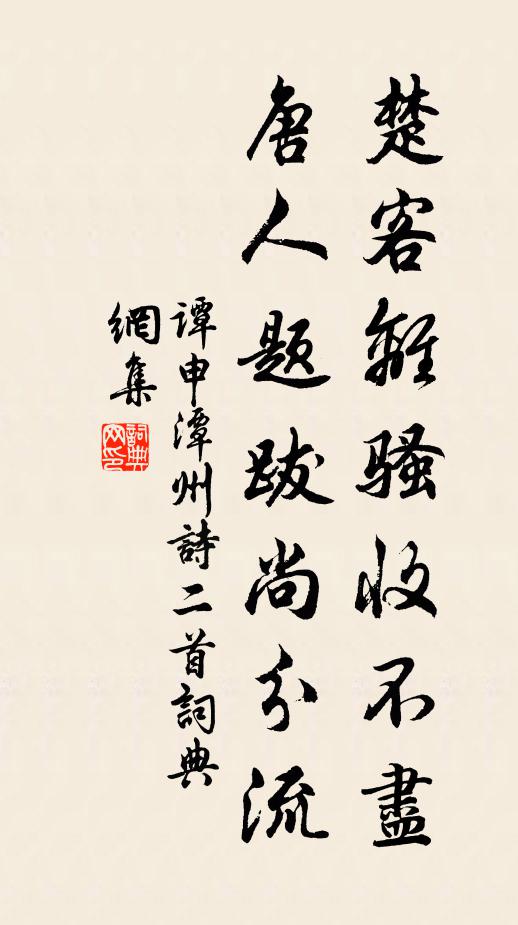 楚客離騷收不盡
唐人題跋尚分流
譚申潭州詩二首詞典
網集
詞典
网印